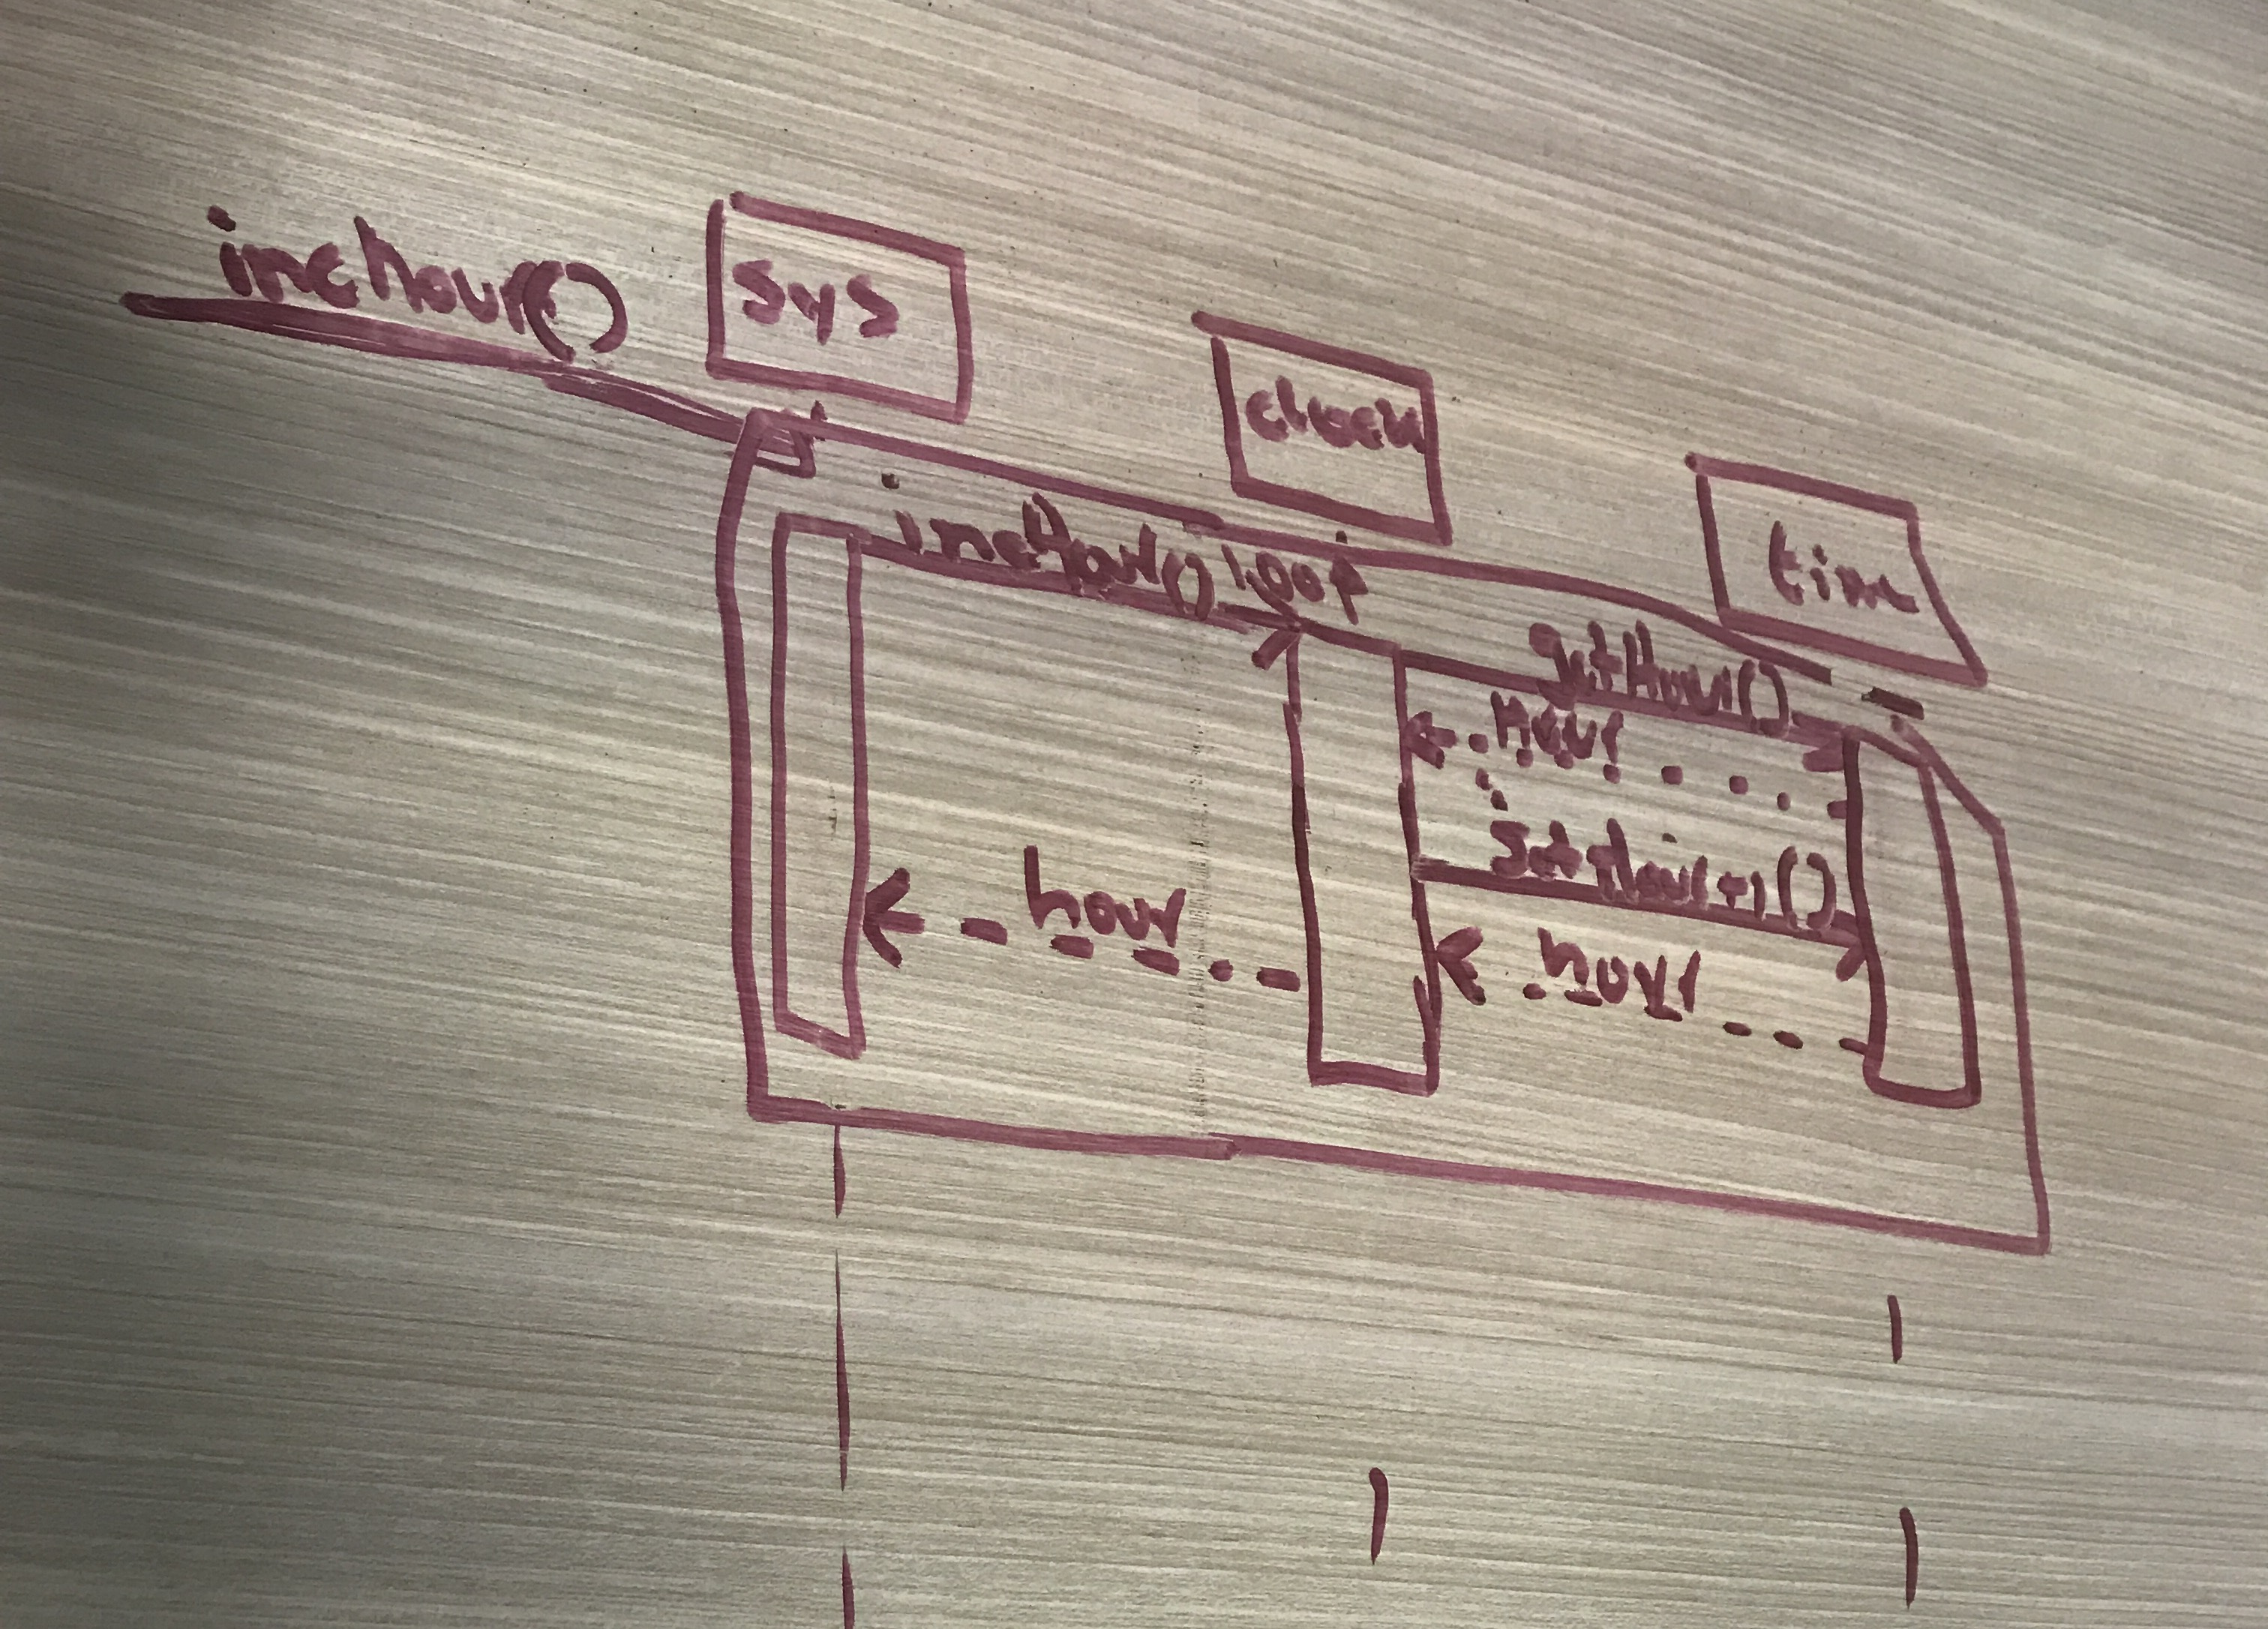 inchour()
sys
clock
time
incHour() loop
getHour()
Hour
setHour+1()
hour
hour